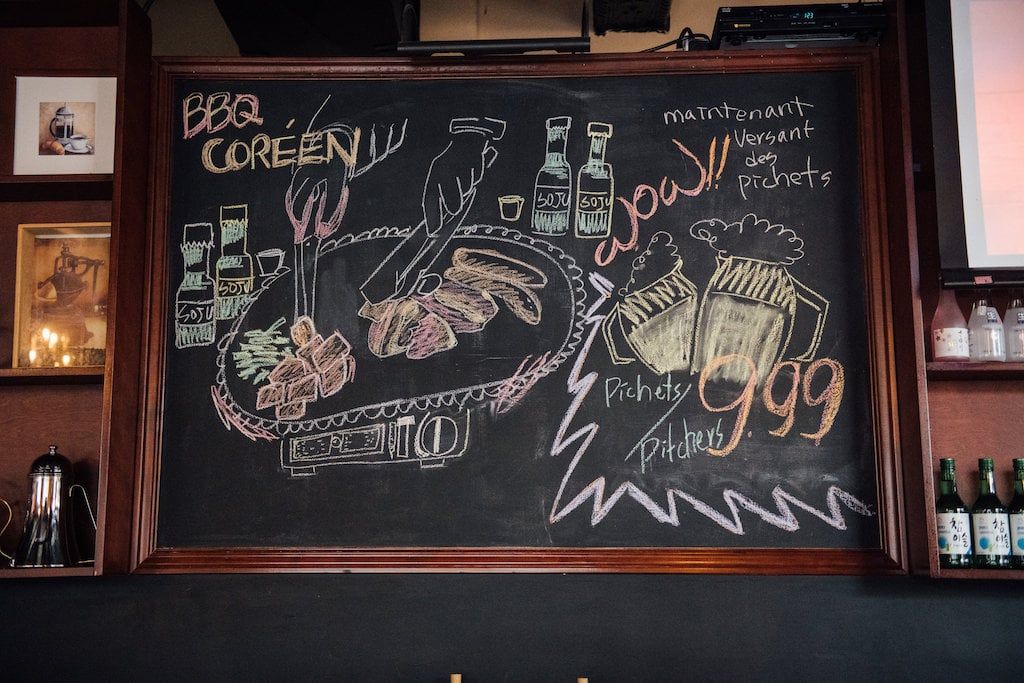 BBQ
CORÉEN
SOJU
SOJU
SOJU
SOJU
maintenant
versant
des
pichets
WOW!!
Pichets/
Pitchers
9.99
123
참
이슬
참
이슬